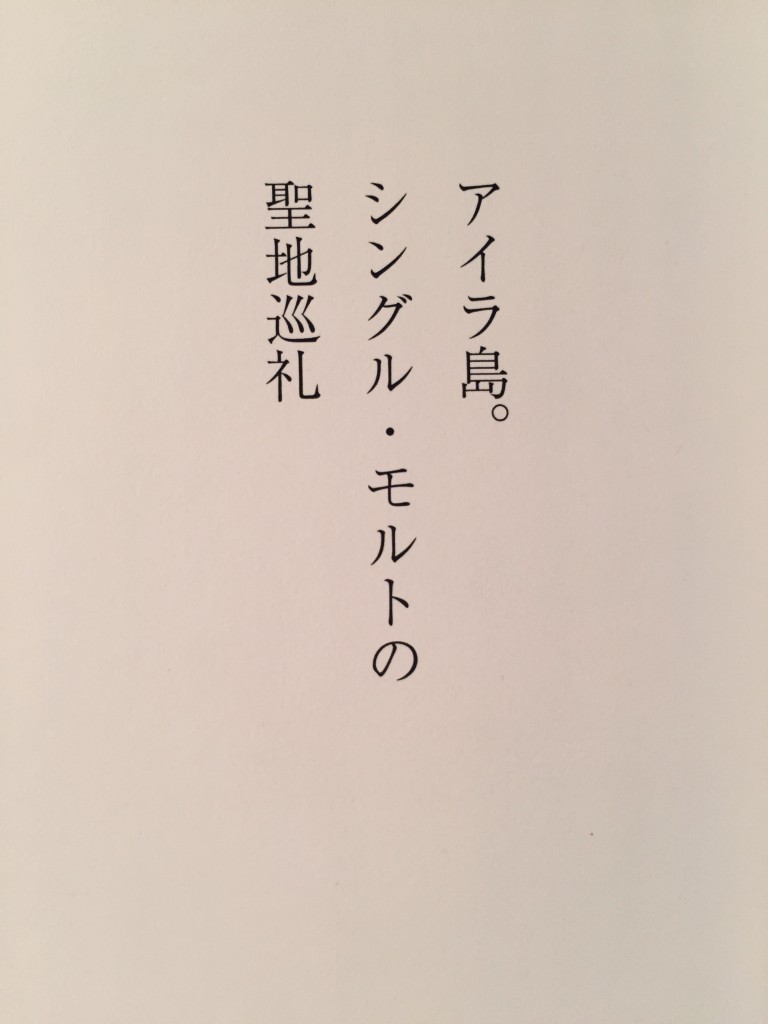 アイラ島。
シングル・モルトの
聖地巡礼